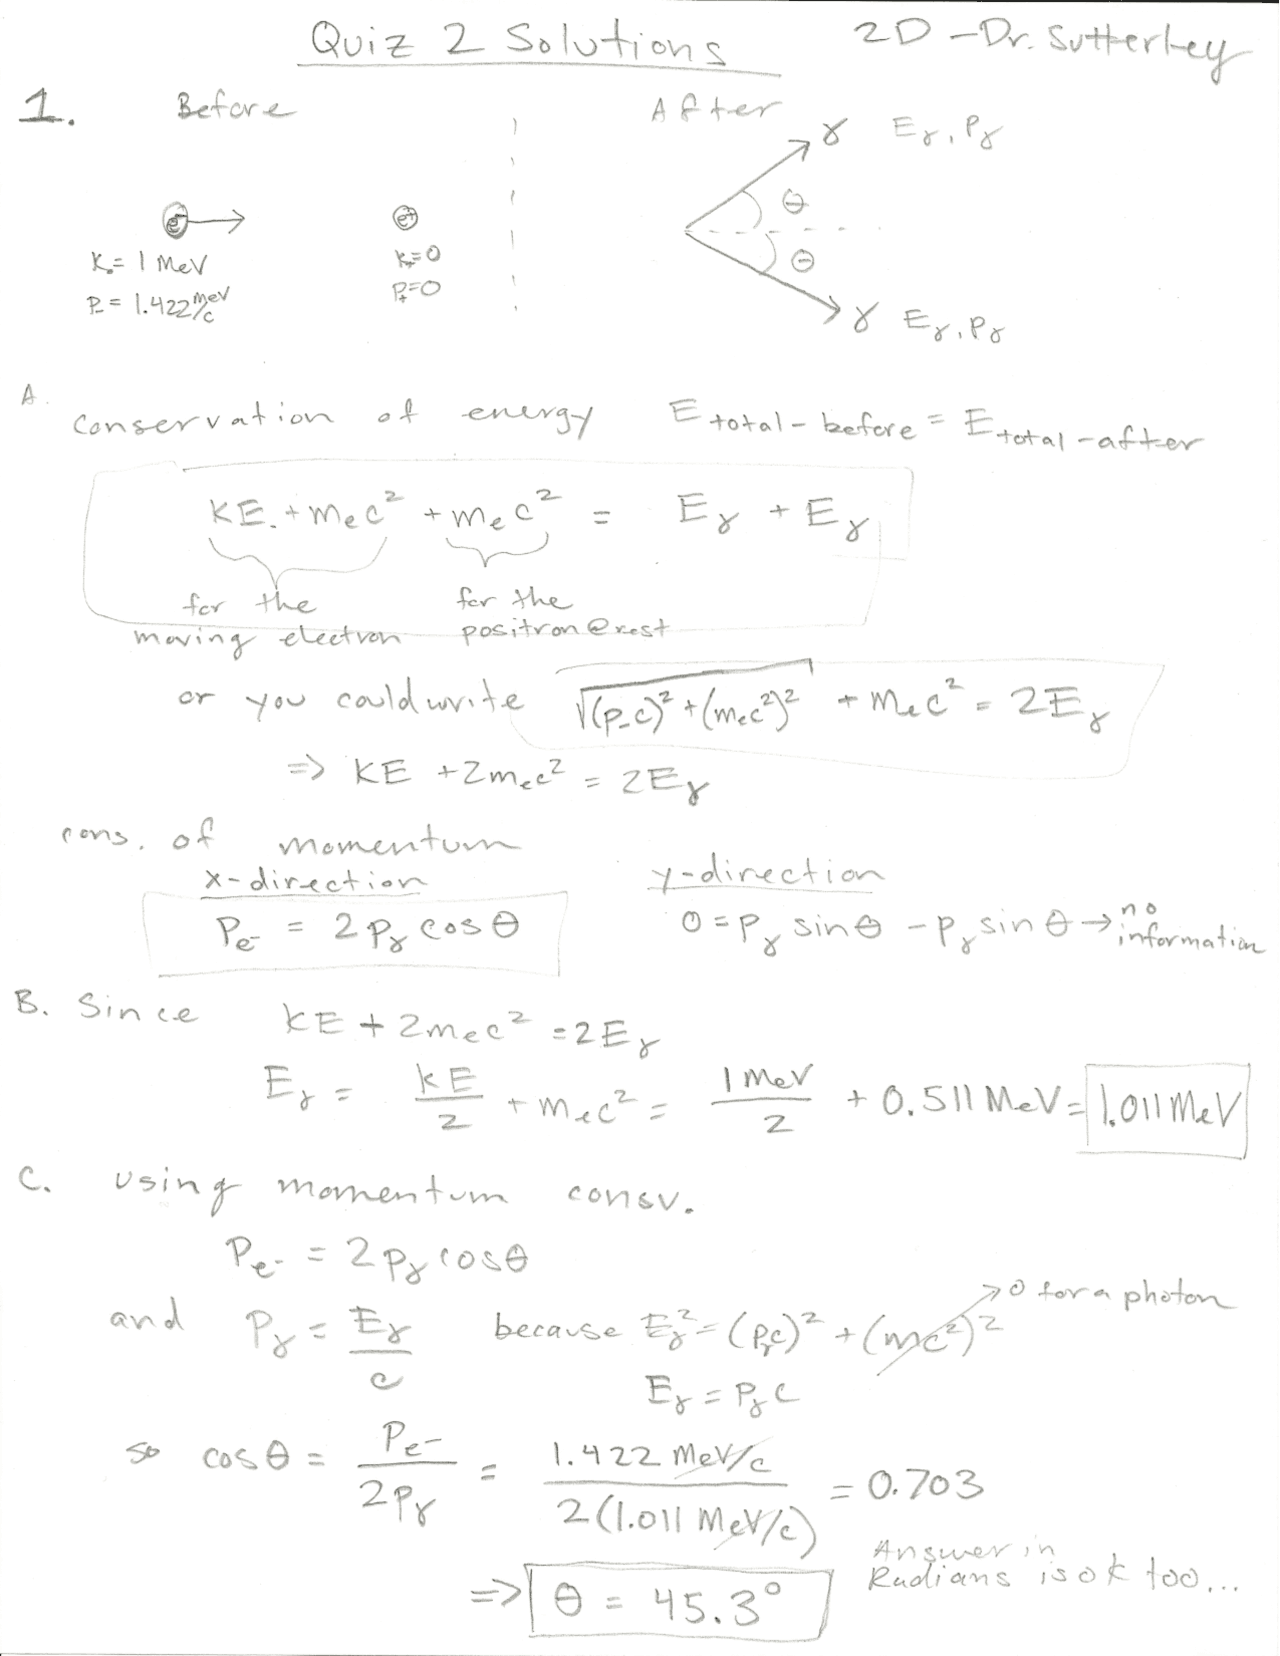 Quiz 2 Solutions 2D - Dr. Sutterley
1. Before After
γ Eγ, Pγ
θ
e⁻ → e⁺
K₋ = 1 MeV K₊=0
P₋ = 1.422 MeV/c P₊=0
θ
γ Eγ, Pγ
A. conservation of energy E total-before = E total-after
KE₋ + mₑc² + mₑc² = Eγ + Eγ
for the for the
moving electron positron @ rest
or you could write √(p₋c)² + (mₑc²)² + mₑc² = 2Eγ
=> KE + 2mₑc² = 2Eγ
cons. of momentum
x-direction y-direction
Pe⁻ = 2pγ cosθ 0 = pγ sinθ - pγ sinθ → no information
B. Since KE + 2mₑc² = 2Eγ
Eγ = KE/2 + mₑc² = 1 MeV/2 + 0.511 MeV = 1.011 MeV
C. using momentum consv.
Pe⁻ = 2pγ cosθ
→0 for a photon
and Pγ = Eγ/c because Eγ² = (Pγc)² + (mc²)²
Eγ = Pγc
so cosθ = Pe⁻/2Pγ = 1.422 MeV/c / 2(1.011 MeV/c) = 0.703
Answer in
Radians is ok too...
=> θ = 45.3°